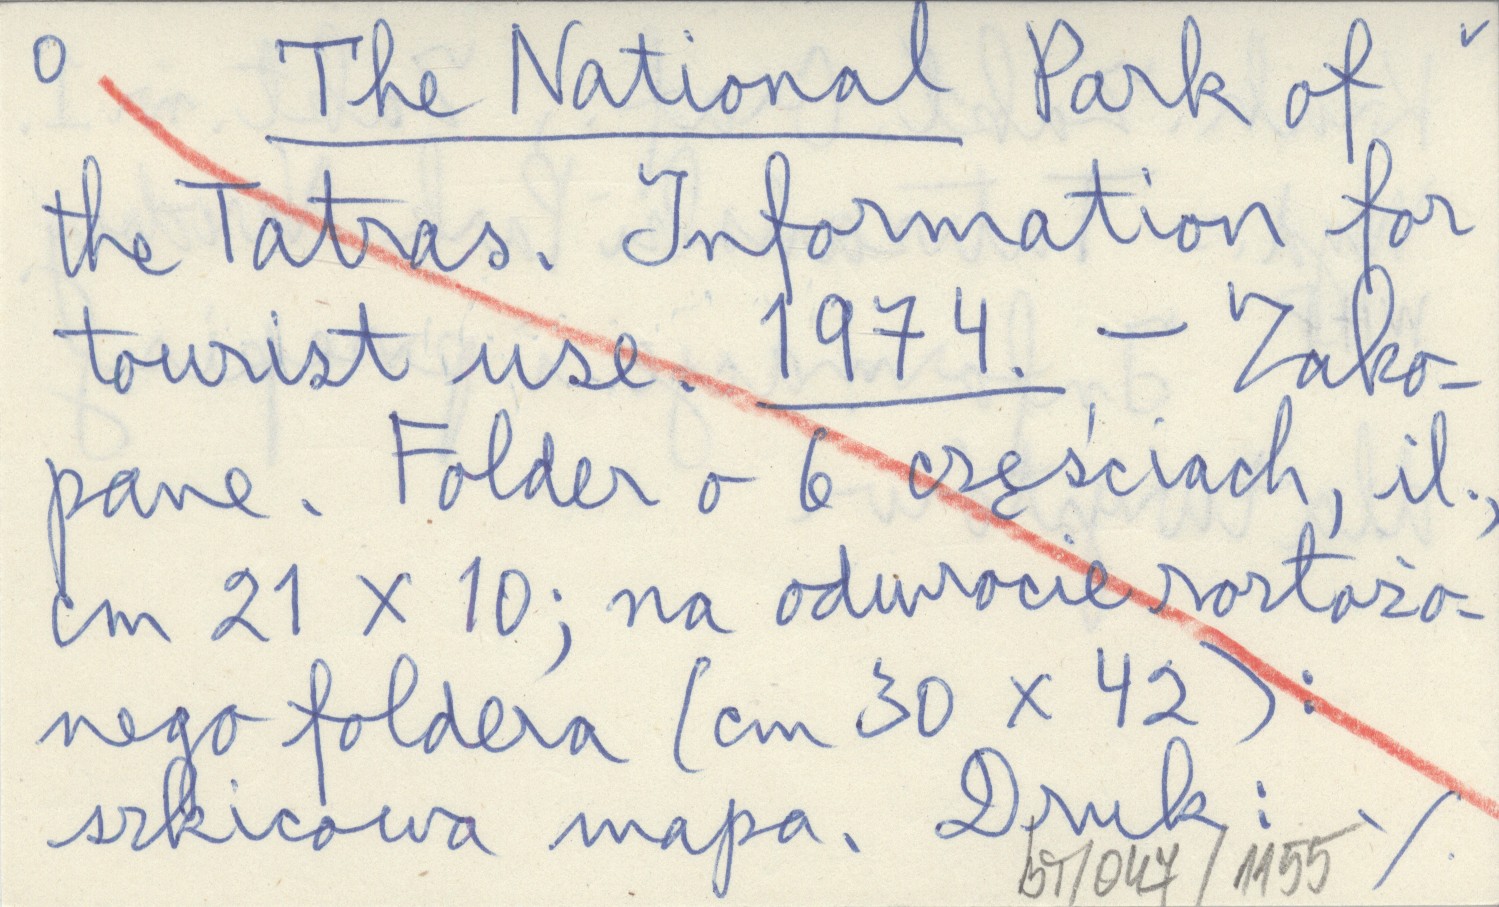 O The National Park of ˇ
the Tatras. Information for
tourist use. 1974. – Zako-
pane. Folder o 6 częściach, il.,
cm 21 x 10; na odwrocie rozłożo-
nego foldera (cm 30 x 42):
szkicowa mapa. Druk: ./.
bT/047/1155